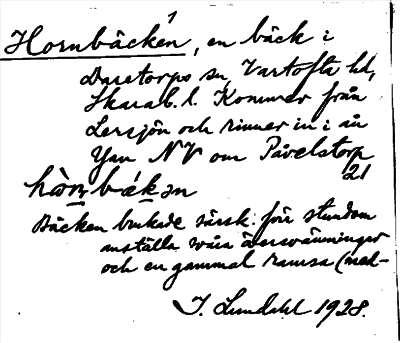 1
Hornbäcken, en bäck i
Daretorps sn, Vartofta hd,
Skarab. l. Kommer från
Lersjön och rinner in i ån
Yan NV om Påvelstorp
21
Bäcken brukade särsk. förr stundom
anställa svåra översvämningar
och en gammal ramsa (ned-
J. Lundahl 1928.